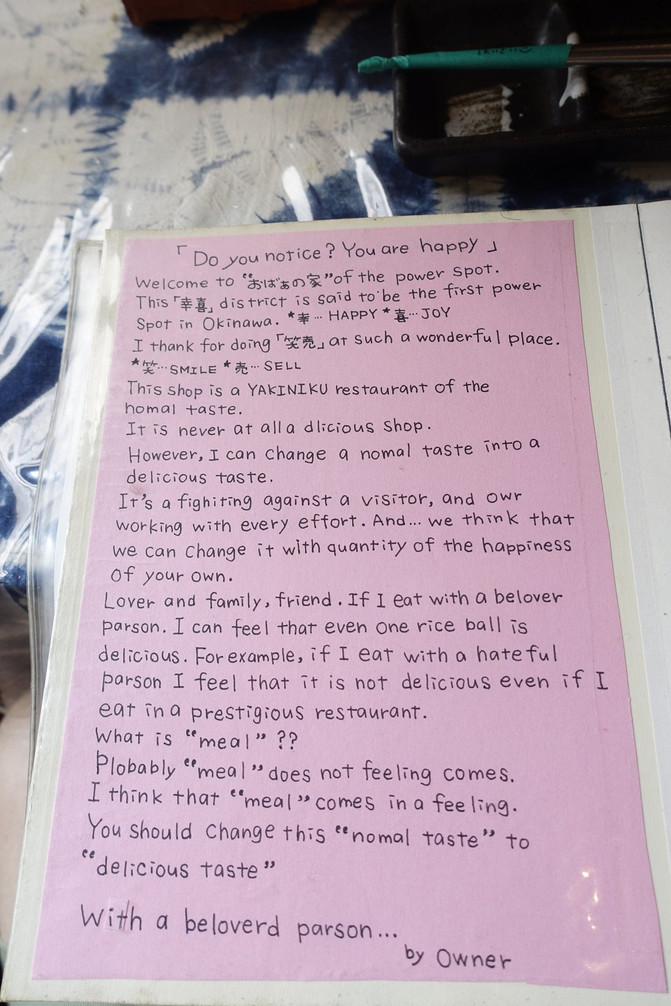 「Do you notice? You are happy」
Welcome to “おばぁの家”of the power spot.
This「幸喜」district is said to be the first power
Spot in Okinawa. *幸… HAPPY *喜…JOY
I thank for doing「笑売」at such a wonderful place.
*笑…SMILE *売…SELL
This shop is a YAKINIKU restaurant of the
homal taste.
It is never at all a dlicious shop.
However, I can change a nomal taste into a
delicious taste.
It's a fighiting against a visitor, and owr
working with every effort. And... we think that
we can change it with quantity of the happiness
Of your own.
Lover and family, friend. If I eat with a belover
parson. I can feel that even one rice ball is
delicious. For example, if I eat with a hateful
parson I feel that it is not delicious even if I
eat in a prestigious restaurant.
What is “meal” ??
Plobably “meal” does not feeling comes.
I think that “meal” comes in a feeling.
You should change this “nomal taste” to
“delicious taste”
With a beloverd parson...
by Owner